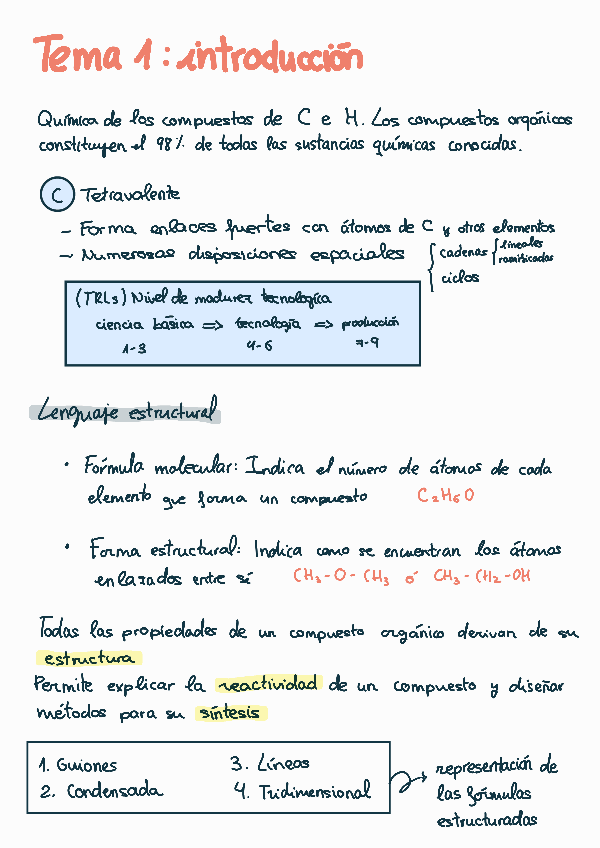 Tema 1: introducción
Química de los compuestos de C e H. Los compuestos orgánicos
constituyen el 98% de todas las sustancias químicas conocidas.
C Tetravalente
- Forma enlaces fuertes con átomos de C y otros elementos
- Numerosas disposiciones espaciales { cadenas { lineales
ramificadas
ciclos
(TRLs) Nivel de madurez tecnológica
ciencia básica => tecnología => producción
1-3 4-6 7-9
Lenguaje estructural
· Fórmula molecular: Indica el número de átomos de cada
elemento que forma un compuesto C₂H₆O
· Forma estructural: Indica como se encuentran los átomos
enlazados entre sí CH₃-O-CH₃ ó CH₃-CH₂-OH
Todas las propiedades de un compuesto orgánico derivan de su
estructura
Permite explicar la reactividad de un compuesto y diseñar
métodos para su síntesis
1. Guiones 3. Líneas
2. Condensada 4. Tridimensional
representación de
las fórmulas
estructuradas